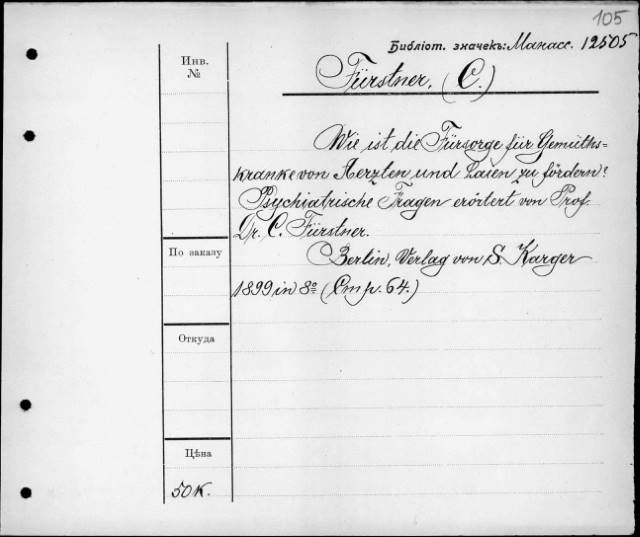 105
Библіот. значекъ: Манасс. 12505
Инв.
№
Fürstner, (C.)
Wie ist die Fürsorge für Gemüths=
kranke von Aerzten und Laien zu fördern?
Psychiatrische Fragen erörtert von Prof.
Dr. C. Fürstner.
По заказу
Berlin, Verlag von S. Karger
1899 in 8º (Стр. 64.)
Откуда
Цѣна
50 к.